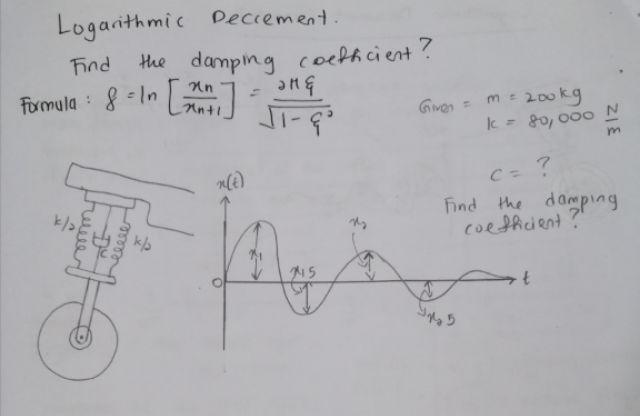 Logarithmic Decrement.
Find the damping coefficient?
Formula: δ = ln [xn / xn+1] = 2πξ / √1-ξ²
Given = m = 200kg
k = 80,000 N/m
c = ?
Find the damping
coefficient?
k/2
c
k/2
x(t)
x1
x1.5
x2
x2.5
0
t